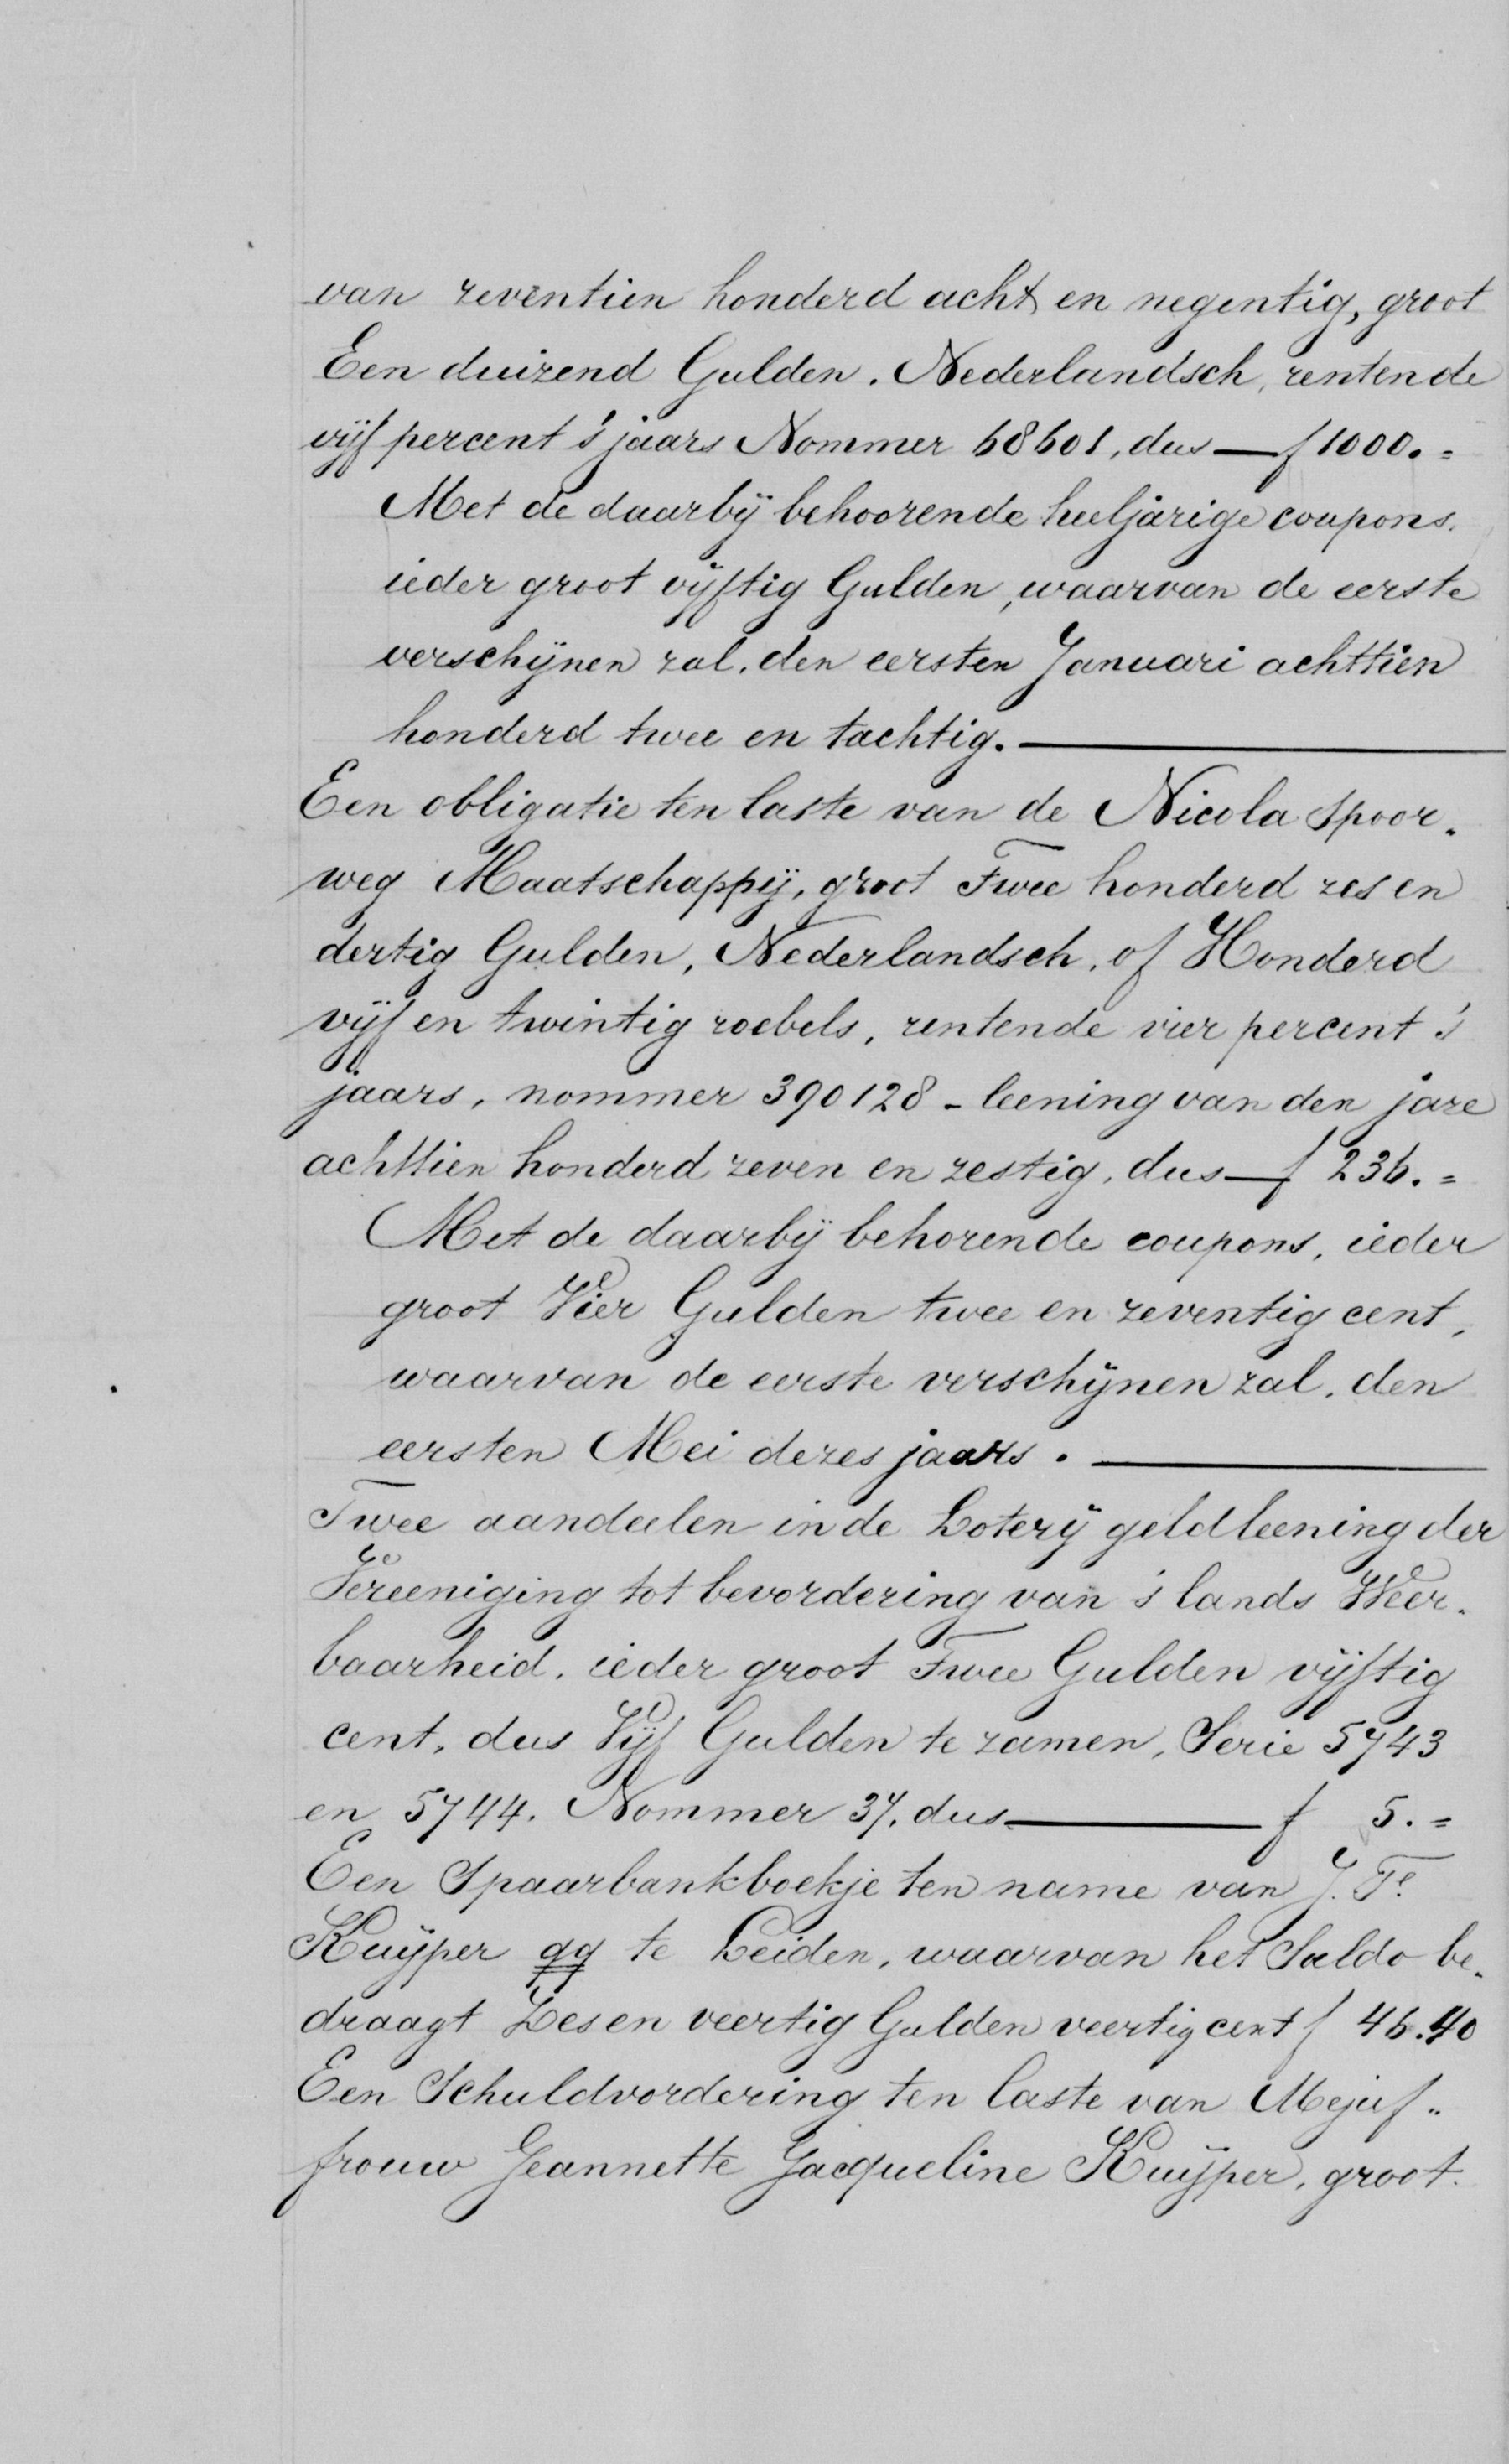 van zeventien honderd acht en negentig, groot
Een duizend Gulden. Nederlandsch, rentende
vijf percent 's jaars Nommer 68601, dus — f 1000.=
Met de daarbij behoorende heeljarige coupons.
ieder groot vijftig Gulden, waarvan de eerste
verschijnen zal. den eersten Januari achttien
honderd twee en tachtig. —
Een obligatie ten laste van de Nicola Spoor-
weg Maatschappij, groot Twee honderd zes en
dertig Gulden, Nederlandsch, of Honderd
vijf en twintig roebels, rentende vier percent 's
jaars, nommer 390128 - leening van den jare
achttien honderd zeven en zestig, dus — f 236.=
Met de daarbij behorende coupons, ieder
groot Vier Gulden twee en zeventig cent,
waarvan de eerste verschijnen zal, den
eersten Mei dezes jaars. —
Twee aandeelen in de Loterij geldleening der
Vereeniging tot bevordering van 's lands Weer-
baarheid, ieder groot Twee Gulden vijftig
cent, dus Vijf Gulden te zamen, Serie 5743
en 5744. Nommer 37, dus — f 5.=
Een Spaarbankboekje ten name van J. Fe.
Kuijper qq te Leiden, waarvan het Saldo be-
draagt Zes en veertig Gulden veertig cent f 46.40
Een Schuldvordering ten laste van Mejuf-
frouw Jeannette Jacqueline Kuijper, groot